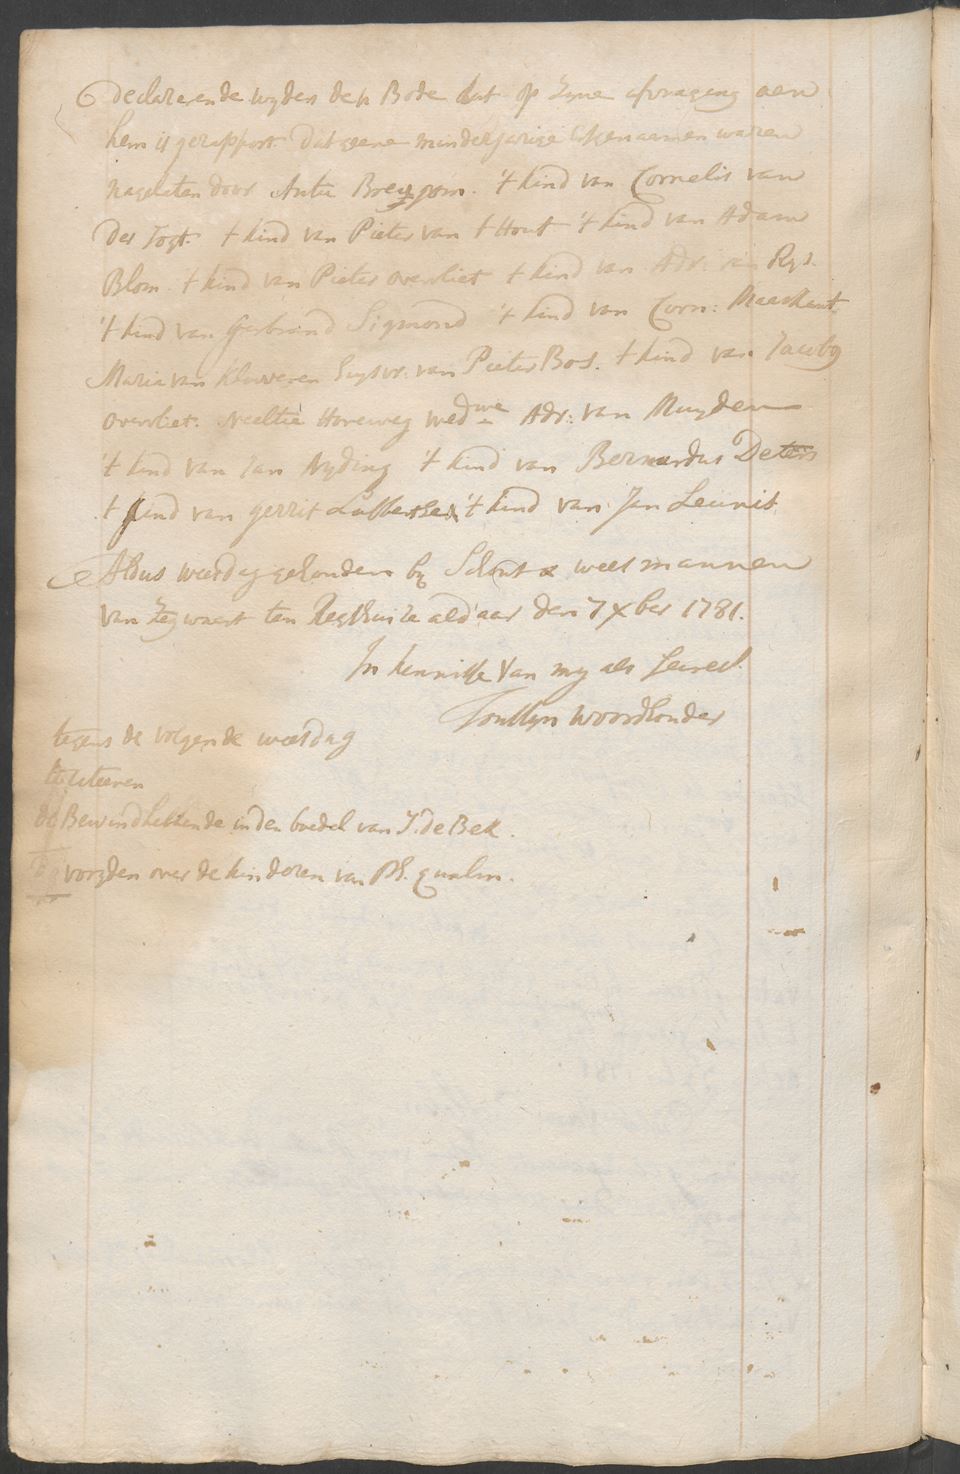 Declareerende wyders den Bode dat op Zyne afvraging aen
hem is gerapport. dat geene minderjarige Erfgenaamen waren
nagelaten door Antie Breggom. 't kind van Cornelis van
Der Togt. t kind van Pieter van t Hout 't kind van Adam
Blom. t kind van Pieter overvliet t kind van Adr: van Rys.
't kind van Gerbrand Sigmond 't kind van Corn: Maaskant
Maria van Kluveren huysvr. van Pieter Bos. t kind van Jacobus
overvliet. Neeltie Horeweg wedwe Adr: van Muyden
't kind van Jan Nyding 't kind van Bernardus Deters
t kind van gerrit Lubbertse 't kind van Jan Leunis
Aldus weesdag gehouden by Schout & weesmannen
van Zegwaert ten Regthuize aldaar den 7 xber 1781.
In kennisse van my als Secrets.
Woordhouder
tegens de volgende weesdag
te citeeren
de Bewindhebbende inden boedel van J. de Bek.
De voogden over de kinderen van Ph. qualm.